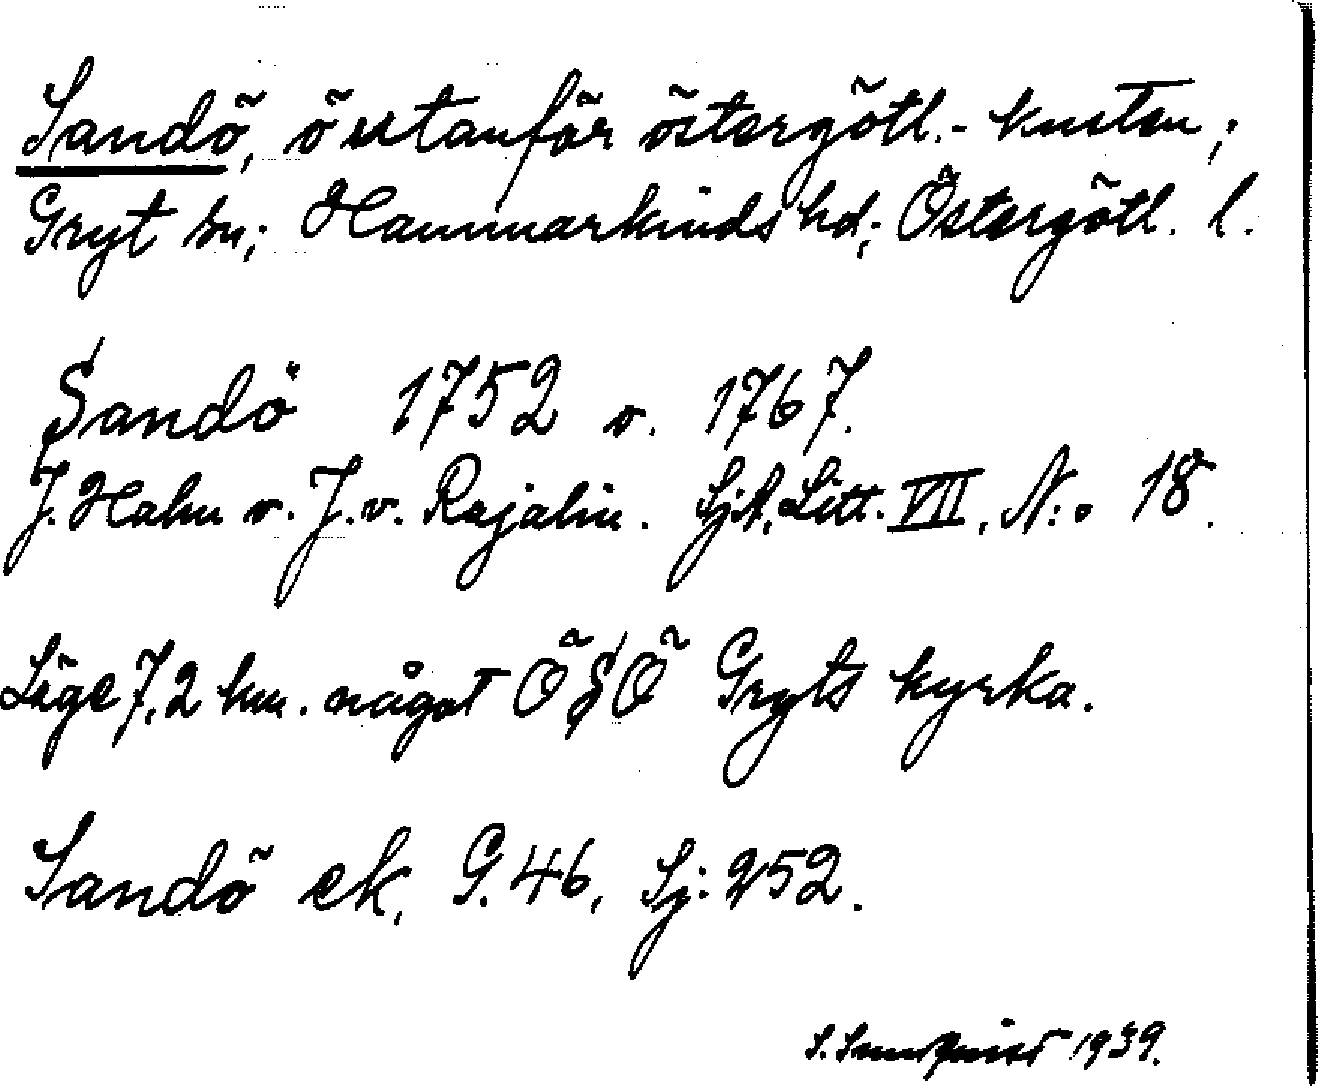 Sandö, ö utanför östergötl.- kusten;
Gryt sn; Hammarkinds hd; Östergötl. l.
Sandö 1752 o. 1767.
J. Hahn o. J. v. Rajalin. SjA, Litt. VII, N:o 18.
Läge 7,2 km. något ÖSÖ Gryts kyrka.
Sandö ek. G. 46, Sj: 252.
S. 1939.